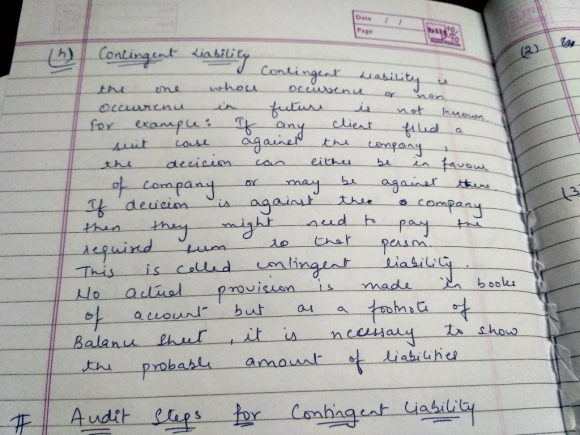 Date / /
Page
(h) Contingent Liability
Contingent Liability is
the one whose occurence or non
occurence in future is not known
For example: If any client filed a
suit case against the company,
the decicion can either be in favour
of company or may be against
If decicion is against the company
then they might need to pay the
required sum to that person.
This is called contingent liability.
No actual provision is made in books
of account but as a footnote of
Balance Sheet, it is necessary to show
the probable amount of liabilities
# Audit Steps for Contingent Liability
(2)
(3